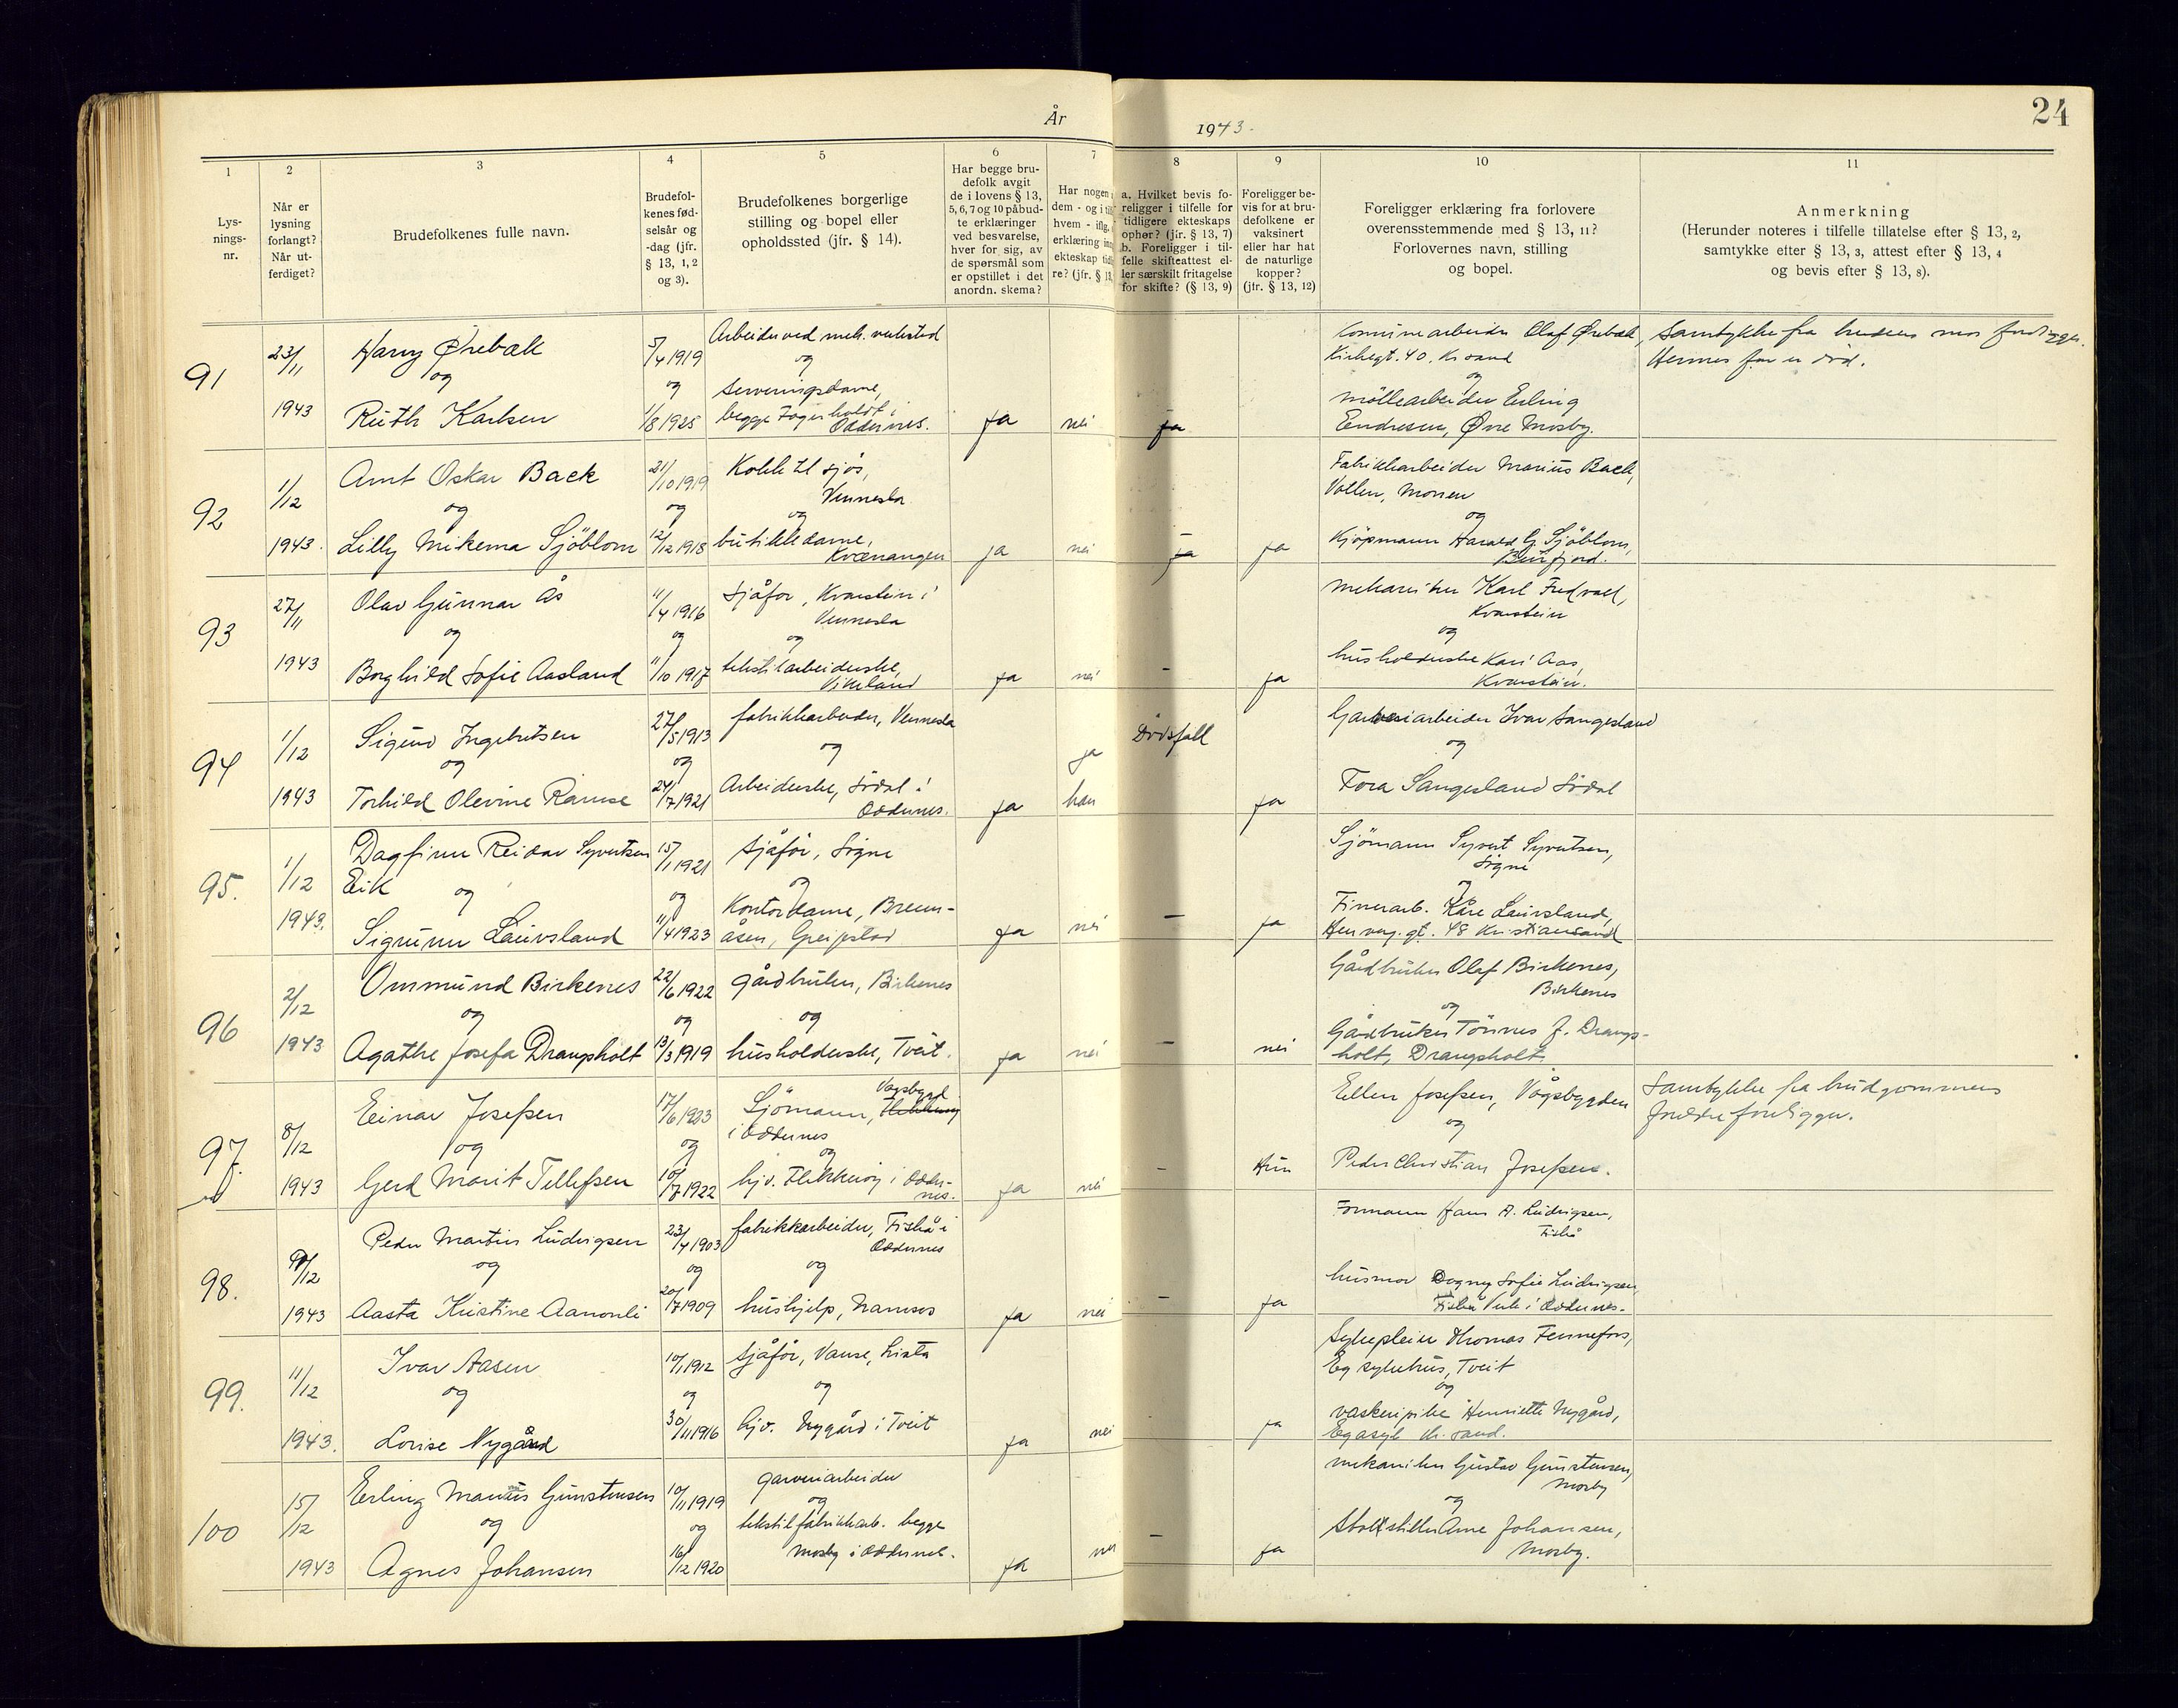 År 1943.
24
1
2
3
4
5
6
7
8
9
10
11
Lys-
nings-
nr.
Når er
lysning
forlangt?
Når ut-
ferdiget?
Brudefolkenes fulle navn.
Brudefol-
kenes fød-
selsår og
-dag (jfr.
§ 13, 1, 2
og 3).
Brudefolkenes borgerlige
stilling og bopel eller
opholdssted (jfr. § 14).
Har begge bru-
defolk avgit
de i lovens § 13,
5, 6, 7 og 10 påbud-
te erklæringer
ved besvarelse,
hver for sig, av
de spørsmål som
er opstillet i det
anordn. skema?
Har nogen
dem - og i
hvem - iflg.
erklæring
ekteskap
re? (jfr. § 13,
a. Hvilket bevis fo-
religger i tilfelle for
tidligere ekteskaps
ophør? (jfr. § 13, 7)
b. Foreligger i til-
felle skifteattest el-
ler særskilt fritagelse
for skifte? (§ 13, 9)
Foreligger be-
vis for at bru-
defolkene er
vaksinert
eller har hat
de naturlige
kopper?
(jfr. § 13, 12)
Foreligger erklæring fra forlovere
overensstemmende med § 13, 11?
Forlovernes navn, stilling
og bopel.
Anmerkning
(Herunder noteres i tilfelle tillatelse efter § 13, 2,
samtykke efter § 13, 3, attest efter § 13, 4
og bevis efter § 13, 8).
91
23/11
1943
Harry Ørebæk
og
Ruth Karlsen
5/4 1919
og
1/8 1925
Arbeider ved mek. verksted
og
serveringsdame,
begge Fagerholdt i
Oddernes.
ja
nei
ja
Kommunearbeider Olaf Ørebæk,
Kirkegt. 40, Kr.sand
og
möllearbeider Erling
Endresen, Øvre Mosby.
Samtykke fra brudens mor foreligger.
Hennes far er död.
92
1/12
1943.
Arnt Oskar Back
og
Lilly Mikema Sjöblom
21/10 1919
og
12/12 1918
Kokk til sjös,
Vennesla
og
butikkdame,
Kvænangen
ja
nei
ja
ja
Fabrikkarbeider Marius Back,
Vollen, Moseen
og
Kjöpmann Harald G. Sjöblom,
Burfjord.
93
27/11
1943
Olav Gunnar Ås
og
Borghild Sofie Aasland
11/4 1916
og
11/10 1917
Sjåför, Kvarstein i
Vennesla
og
tekstilarbeiderske,
Vikeland
ja
nei
-
ja
mekaniker Karl Fredvall,
Kvarstein
og
husholderske Kari Aas,
Kvarstein.
94
1/12
1943
Sigurd Ingebretsen
og
Torhild Olevine Ramse
27/5 1913
og
24/7 1921
fabrikkarbeider, Vennesla
og
Arbeiderske, Södal i
Oddernes.
ja
ja
han
Dödsfall
ja
Garveriarbeider Ivar Sangesland
og
Tora Sangesland Södal
95.
1/12
1943.
Dagfinn Reidar Syvertsen
Eik og
Sigrunn Lauvsland
15/1 1921
og
11/4 1923
Sjåför, Sögne
og
Kontordame, Breum-
åsen, Greipstad
ja
nei
-
ja
Sjömann Syvert Syvertsen,
Sögne
og
Finerarb. Kåre Lauvsland,
Hen. verg. gt. 48 Kristiansand
96
2/12
1943
Ommund Birkenes
og
Agathe Josefa Drangsholt
22/6 1922
og
13/3 1919
gårdbruker, Birkenes
og
husholderske, Tveit.
ja
nei
-
nei
Gårdbruker Olaf Birkenes,
Birkenes
og
Gårdbruker Tönnes J. Drangs-
holt, Drangsholt.
97.
8/12
1943
Einar Josefsen
og
Gerd Marit Tellefsen
17/6 1923
og
10/7 1922
Vågsbygd
Sjömann, Flekkeröy
i Oddernes
og
hjv. Flekkeröy i Odder-
nes.
ja
nei
-
Hun
Ellen Josefsen, Vågsbygden
og
Peder Christian Josefsen.
Samtykke fra brudgommens
foreldre foreligger.
98.
/12
1943
Peder Martin Ludvigsen
og
Aasta Kristine Aanonli
23/4 1903
og
20/7 1909
fabrikkarbeider, Fiskå i
Oddernes
og
hushjelp, Namsos
ja
nei
-
ja
Formann Hans A. Ludvigsen,
Fiskå
husmor Dagny Sofie Ludvigsen,
Fiskå Verk i Oddernes.
99.
11/12
1943.
Ivar Aasen
og
Lovise Nygård
10/1 1912
og
30/11 1916
Sjåför, Vanse, Lista
og
hjv. Nygård i Tveit
ja
nei
-
ja
Sykepleier Thomas Fennefoss,
Eg sykehus, Tveit
og
vaskeripike Henriette Nygård,
Eg asyl Kr. sand.
100
15/12
1943
Erling Marius Gunstensen
og
Agnes Johansen
10/11 1919
og
16/12 1920
garveriarbeider
og
tekstilfabrikkarb. begge
Mosby i Oddernes.
ja
nei
-
ja
mekaniker Gustav Gunstensen,
Mosby
og
Stolstiller Arne Johansen,
Mosby.